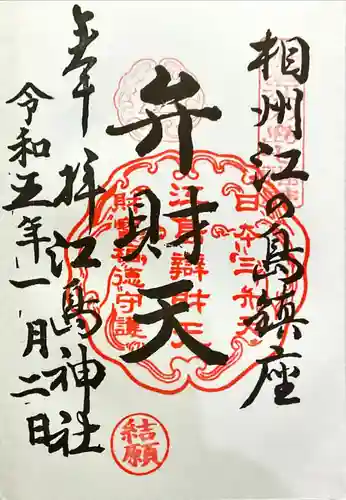 相州江の島鎮座
弁財天
奉拝江島神社
令和五年一月二日
日本三弁天
江島辯財天
結願